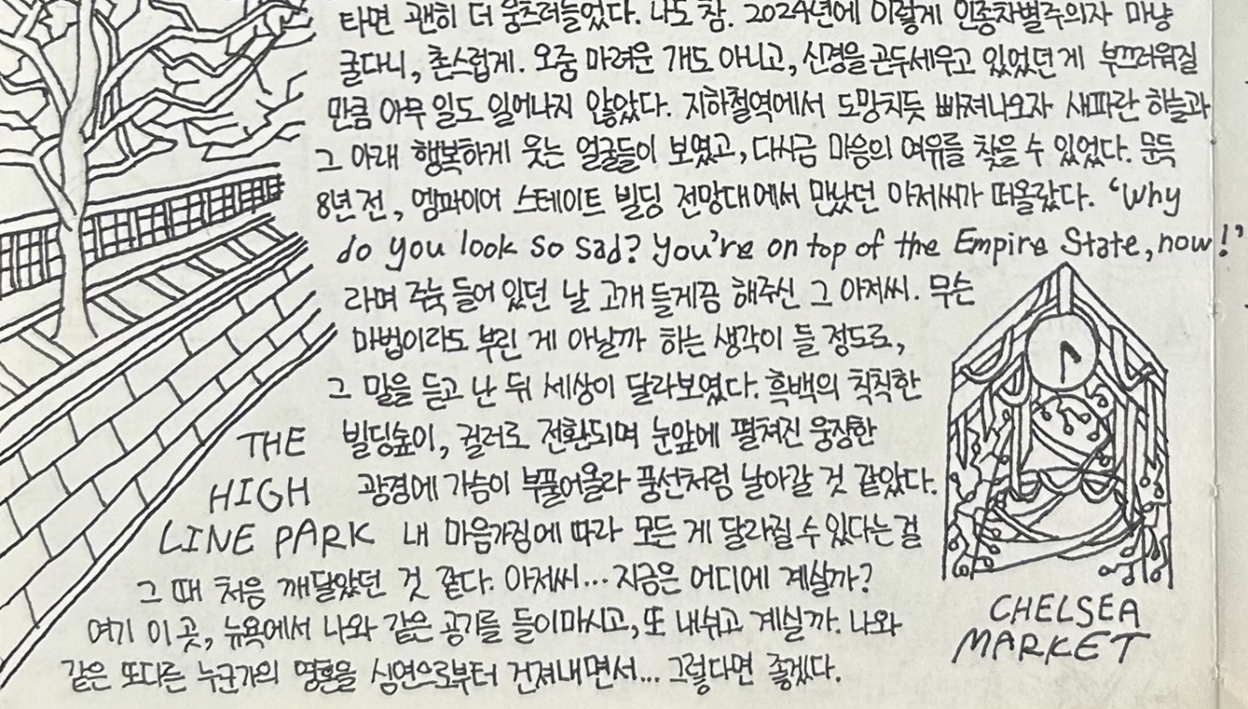 타면 괜히 더 움츠러들었다. 나도 참. 2024년에 이렇게 인종차별주의자 마냥
굴다니, 촌스럽게. 오줌 마려운 개도 아니고, 신경을 곤두세우고 있었던 게 부끄러워질
만큼 아무 일도 일어나지 않았다. 지하철역에서 도망치듯 빠져나오자 새파란 하늘과
그 아래 행복하게 웃는 얼굴들이 보였고, 다시금 마음의 여유를 찾을 수 있었다. 문득
8년 전, 엠파이어 스테이트 빌딩 전망대에서 만났던 아저씨가 떠올랐다. ‘Why
do you look so sad? You're on top of the Empire State, now!’
라며 주눅 들어 있던 날 고개 들게끔 해주신 그 아저씨. 무슨
마법이라도 부린 게 아닐까 하는 생각이 들 정도로,
그 말을 듣고 난 뒤 세상이 달라보였다. 흑백의 칙칙한
빌딩숲이, 컬러로 전환되며 눈앞에 펼쳐진 웅장한
광경에 가슴이 부풀어올라 풍선처럼 날아갈 것 같았다.
내 마음가짐에 따라 모든 게 달라질 수 있다는 걸
그 때 처음 깨달았던 것 같다. 아저씨... 지금은 어디에 계실까?
여기 이 곳, 뉴욕에서 나와 같은 공기를 들이마시고, 또 내쉬고 계실까. 나와
같은 또다른 누군가의 영혼을 심연으로부터 건져내면서... 그렇다면 좋겠다.
THE
HIGH
LINE PARK
CHELSEA
MARKET